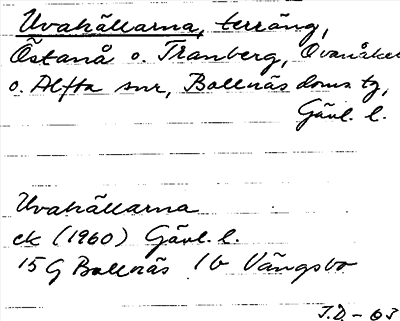 Uvahällarna, terräng,
Östanå o. Tranberg, Ovanåker
o. Alfta snr, Bollnäs doms tg,
Gävl. l.
Uvahällarna
ek (1960) Gävl. l.
15 G Bollnäs 1 b Vängsbo
J.D. - 63